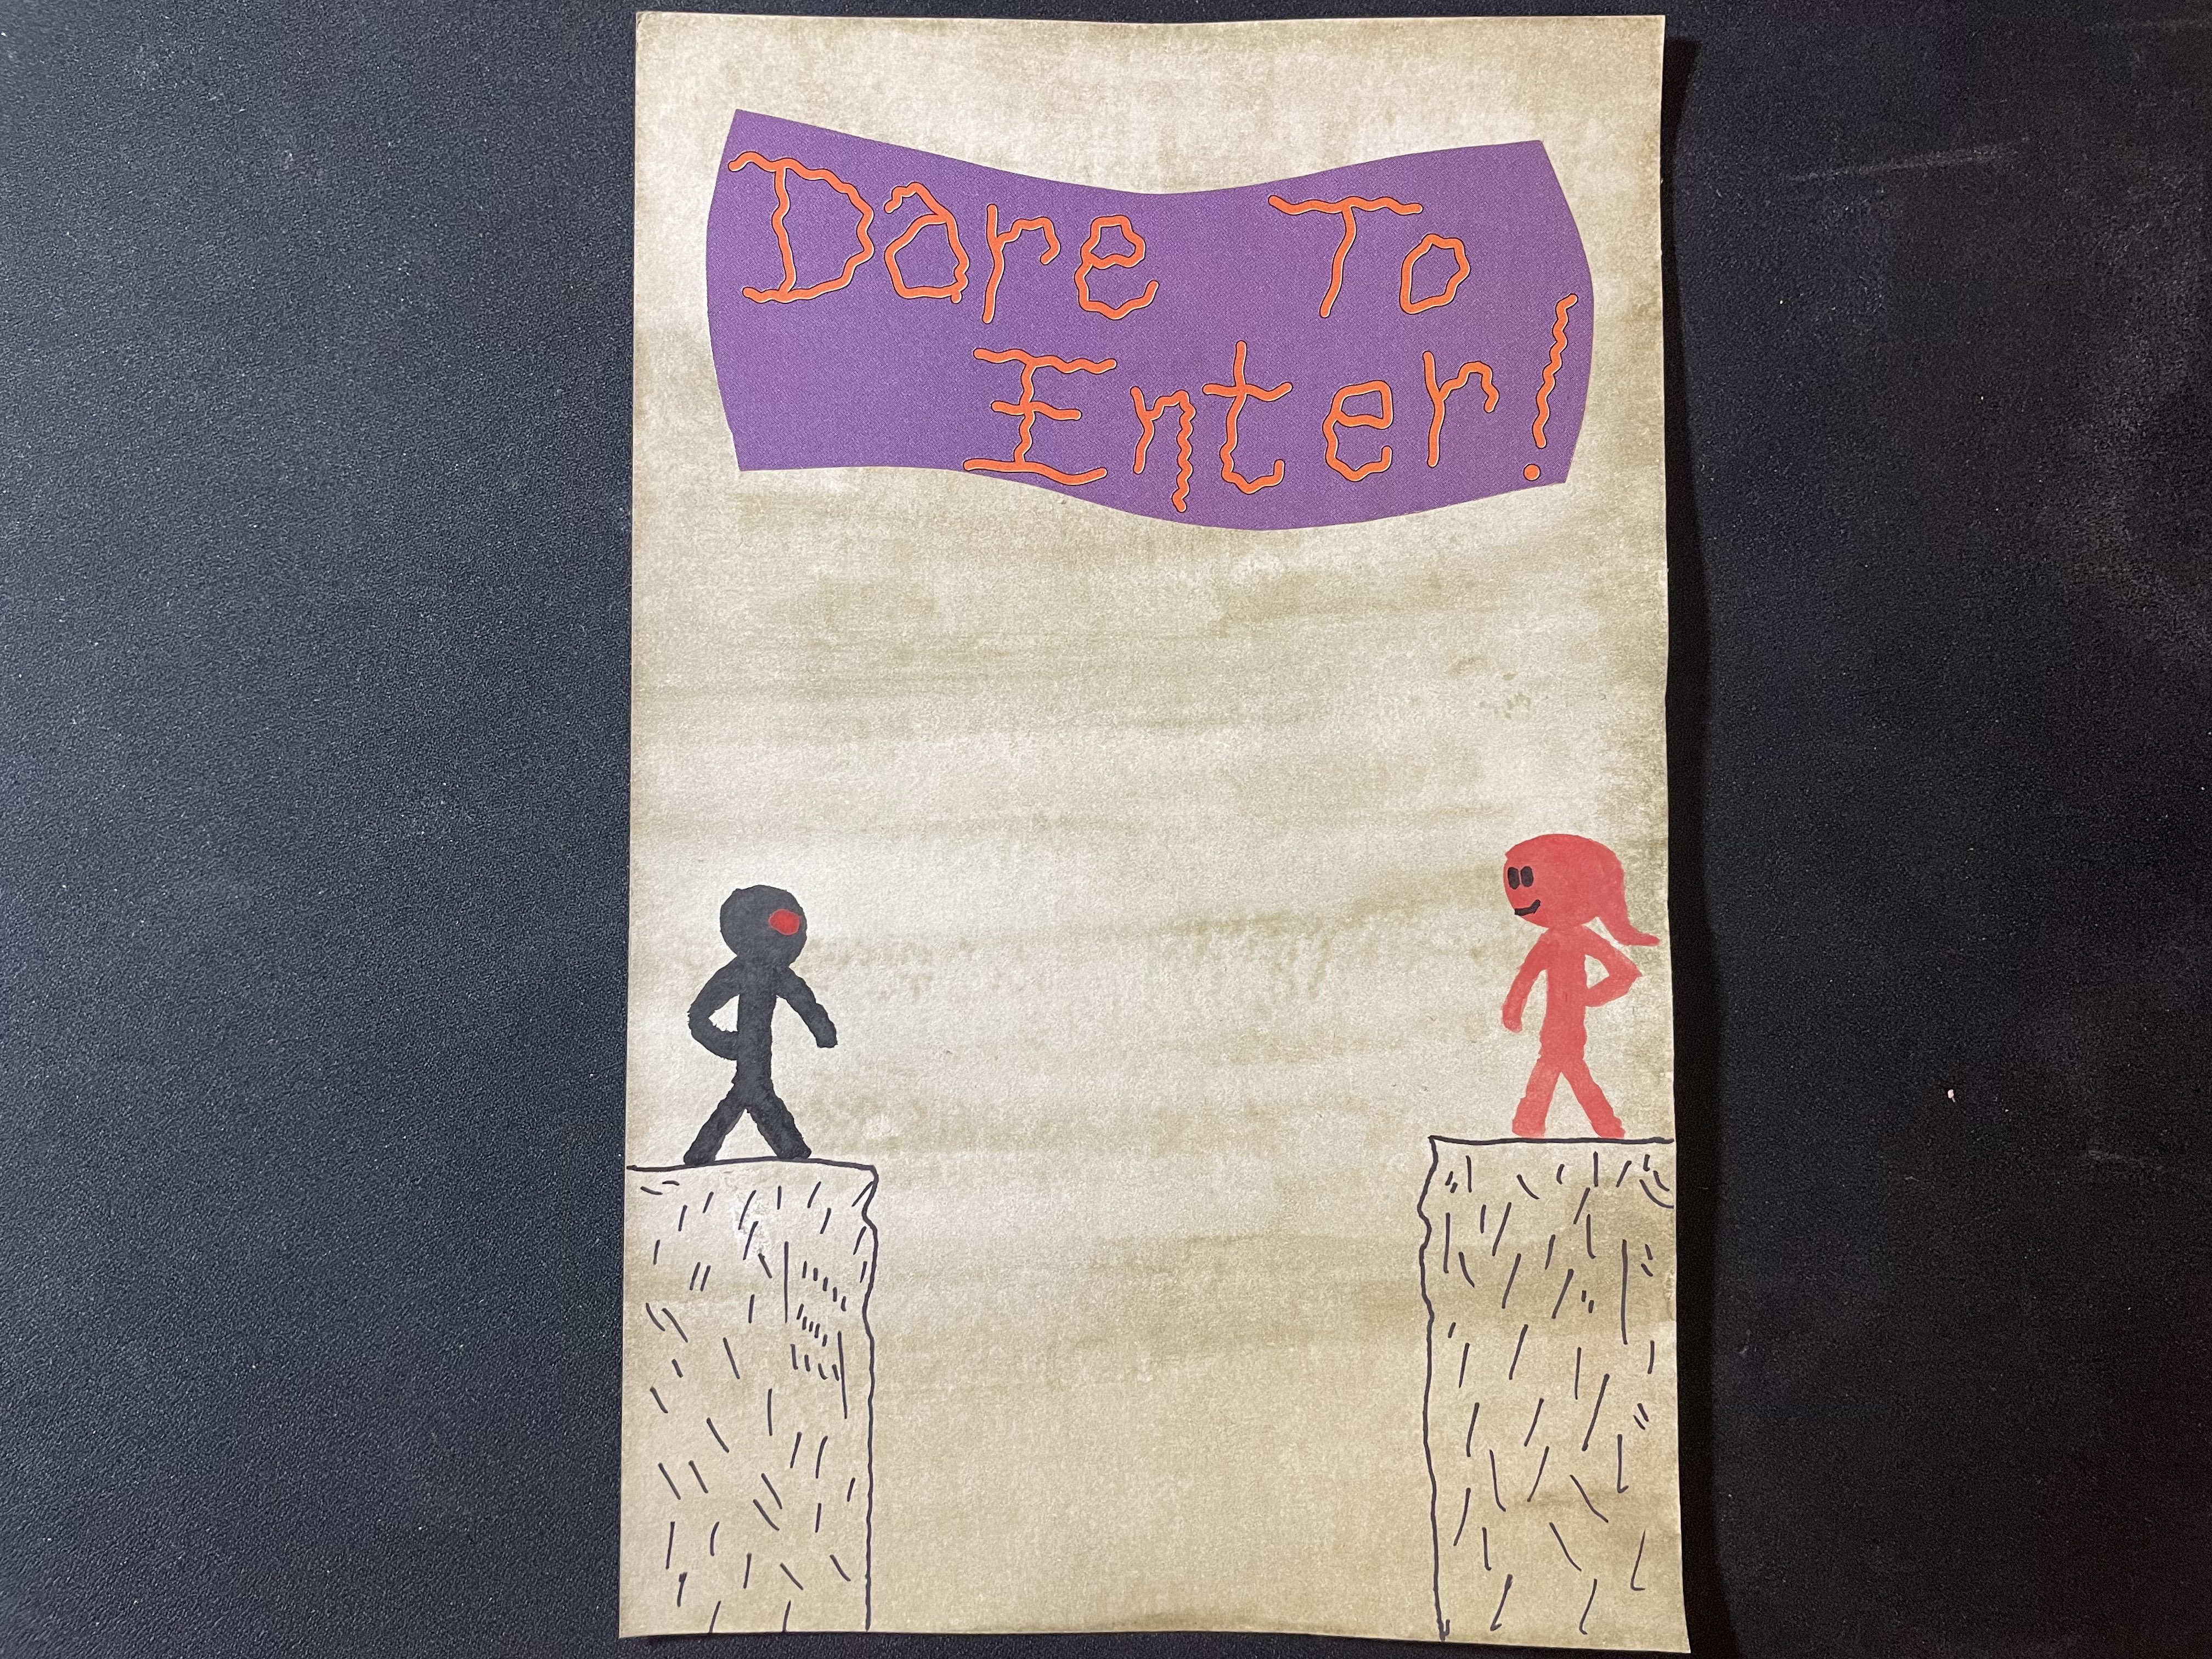 Dare To
Enter!